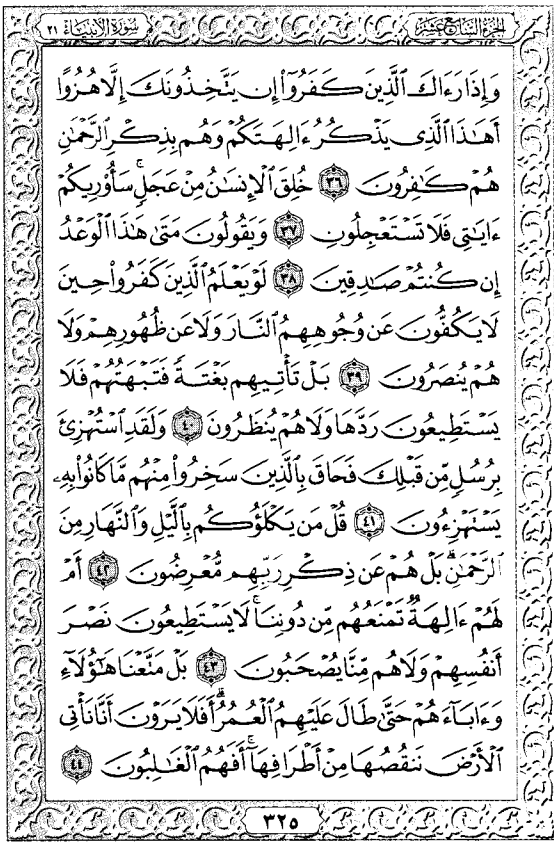 الجزء السابع عشر
سورة الأنبياء ٢١
وَإِذَا رَءَاكَ ٱلَّذِينَ كَفَرُوٓا۟ إِن يَتَّخِذُونَكَ إِلَّا هُزُوًا
أَهَٰذَا ٱلَّذِى يَذْكُرُ ءَالِهَتَكُمْ وَهُم بِذِكْرِ ٱلرَّحْمَٰنِ
هُمْ كَٰفِرُونَ ٣٦ خُلِقَ ٱلْإِنسَٰنُ مِنْ عَجَلٍ ۚ سَأُو۟رِيكُمْ
ءَايَٰتِى فَلَا تَسْتَعْجِلُونِ ٣٧ وَيَقُولُونَ مَتَىٰ هَٰذَا ٱلْوَعْدُ
إِن كُنتُمْ صَٰدِقِينَ ٣٨ لَوْ يَعْلَمُ ٱلَّذِينَ كَفَرُوا۟ حِينَ
لَا يَكُفُّونَ عَن وُجُوهِهِمُ ٱلنَّارَ وَلَا عَن ظُهُورِهِمْ وَلَا
هُمْ يُنصَرُونَ ٣٩ بَلْ تَأْتِيهِم بَغْتَةً فَتَبْهَتُهُمْ فَلَا
يَسْتَطِيعُونَ رَدَّهَا وَلَا هُمْ يُنظَرُونَ ٤٠ وَلَقَدِ ٱسْتُهْزِئَ
بِرُسُلٍ مِّن قَبْلِكَ فَحَاقَ بِٱلَّذِينَ سَخِرُوا۟ مِنْهُم مَّا كَانُوا۟ بِهِۦ
يَسْتَهْزِءُونَ ٤١ قُلْ مَن يَكْلَؤُكُم بِٱلَّيْلِ وَٱلنَّهَارِ مِنَ
ٱلرَّحْمَٰنِ ۗ بَلْ هُمْ عَن ذِكْرِ رَبِّهِم مُّعْرِضُونَ ٤٢ أَمْ
لَهُمْ ءَالِهَةٌ تَمْنَعُهُم مِّن دُونِنَا ۚ لَا يَسْتَطِيعُونَ نَصْرَ
أَنفُسِهِمْ وَلَا هُم مِّنَّا يُصْحَبُونَ ٤٣ بَلْ مَتَّعْنَا هَٰٓؤُلَآءِ
وَءَابَآءَهُمْ حَتَّىٰ طَالَ عَلَيْهِمُ ٱلْعُمُرُ ۗ أَفَلَا يَرَوْنَ أَنَّا نَأْتِى
ٱلْأَرْضَ نَنقُصُهَا مِنْ أَطْرَافِهَآ ۚ أَفَهُمُ ٱلْغَٰلِبُونَ ٤٤
٣٢٥